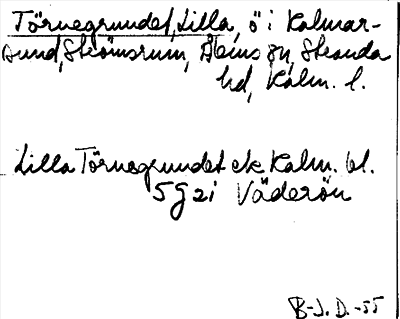 Törnegrundet, Lilla, ö i Kalmar-
sund, Strömsrum, Ålems sn, Stranda
hd, Kalm. l.
Lilla Törnegrundet ek Kalm. bl.
5G 2i Väderön
B-J. D. -55